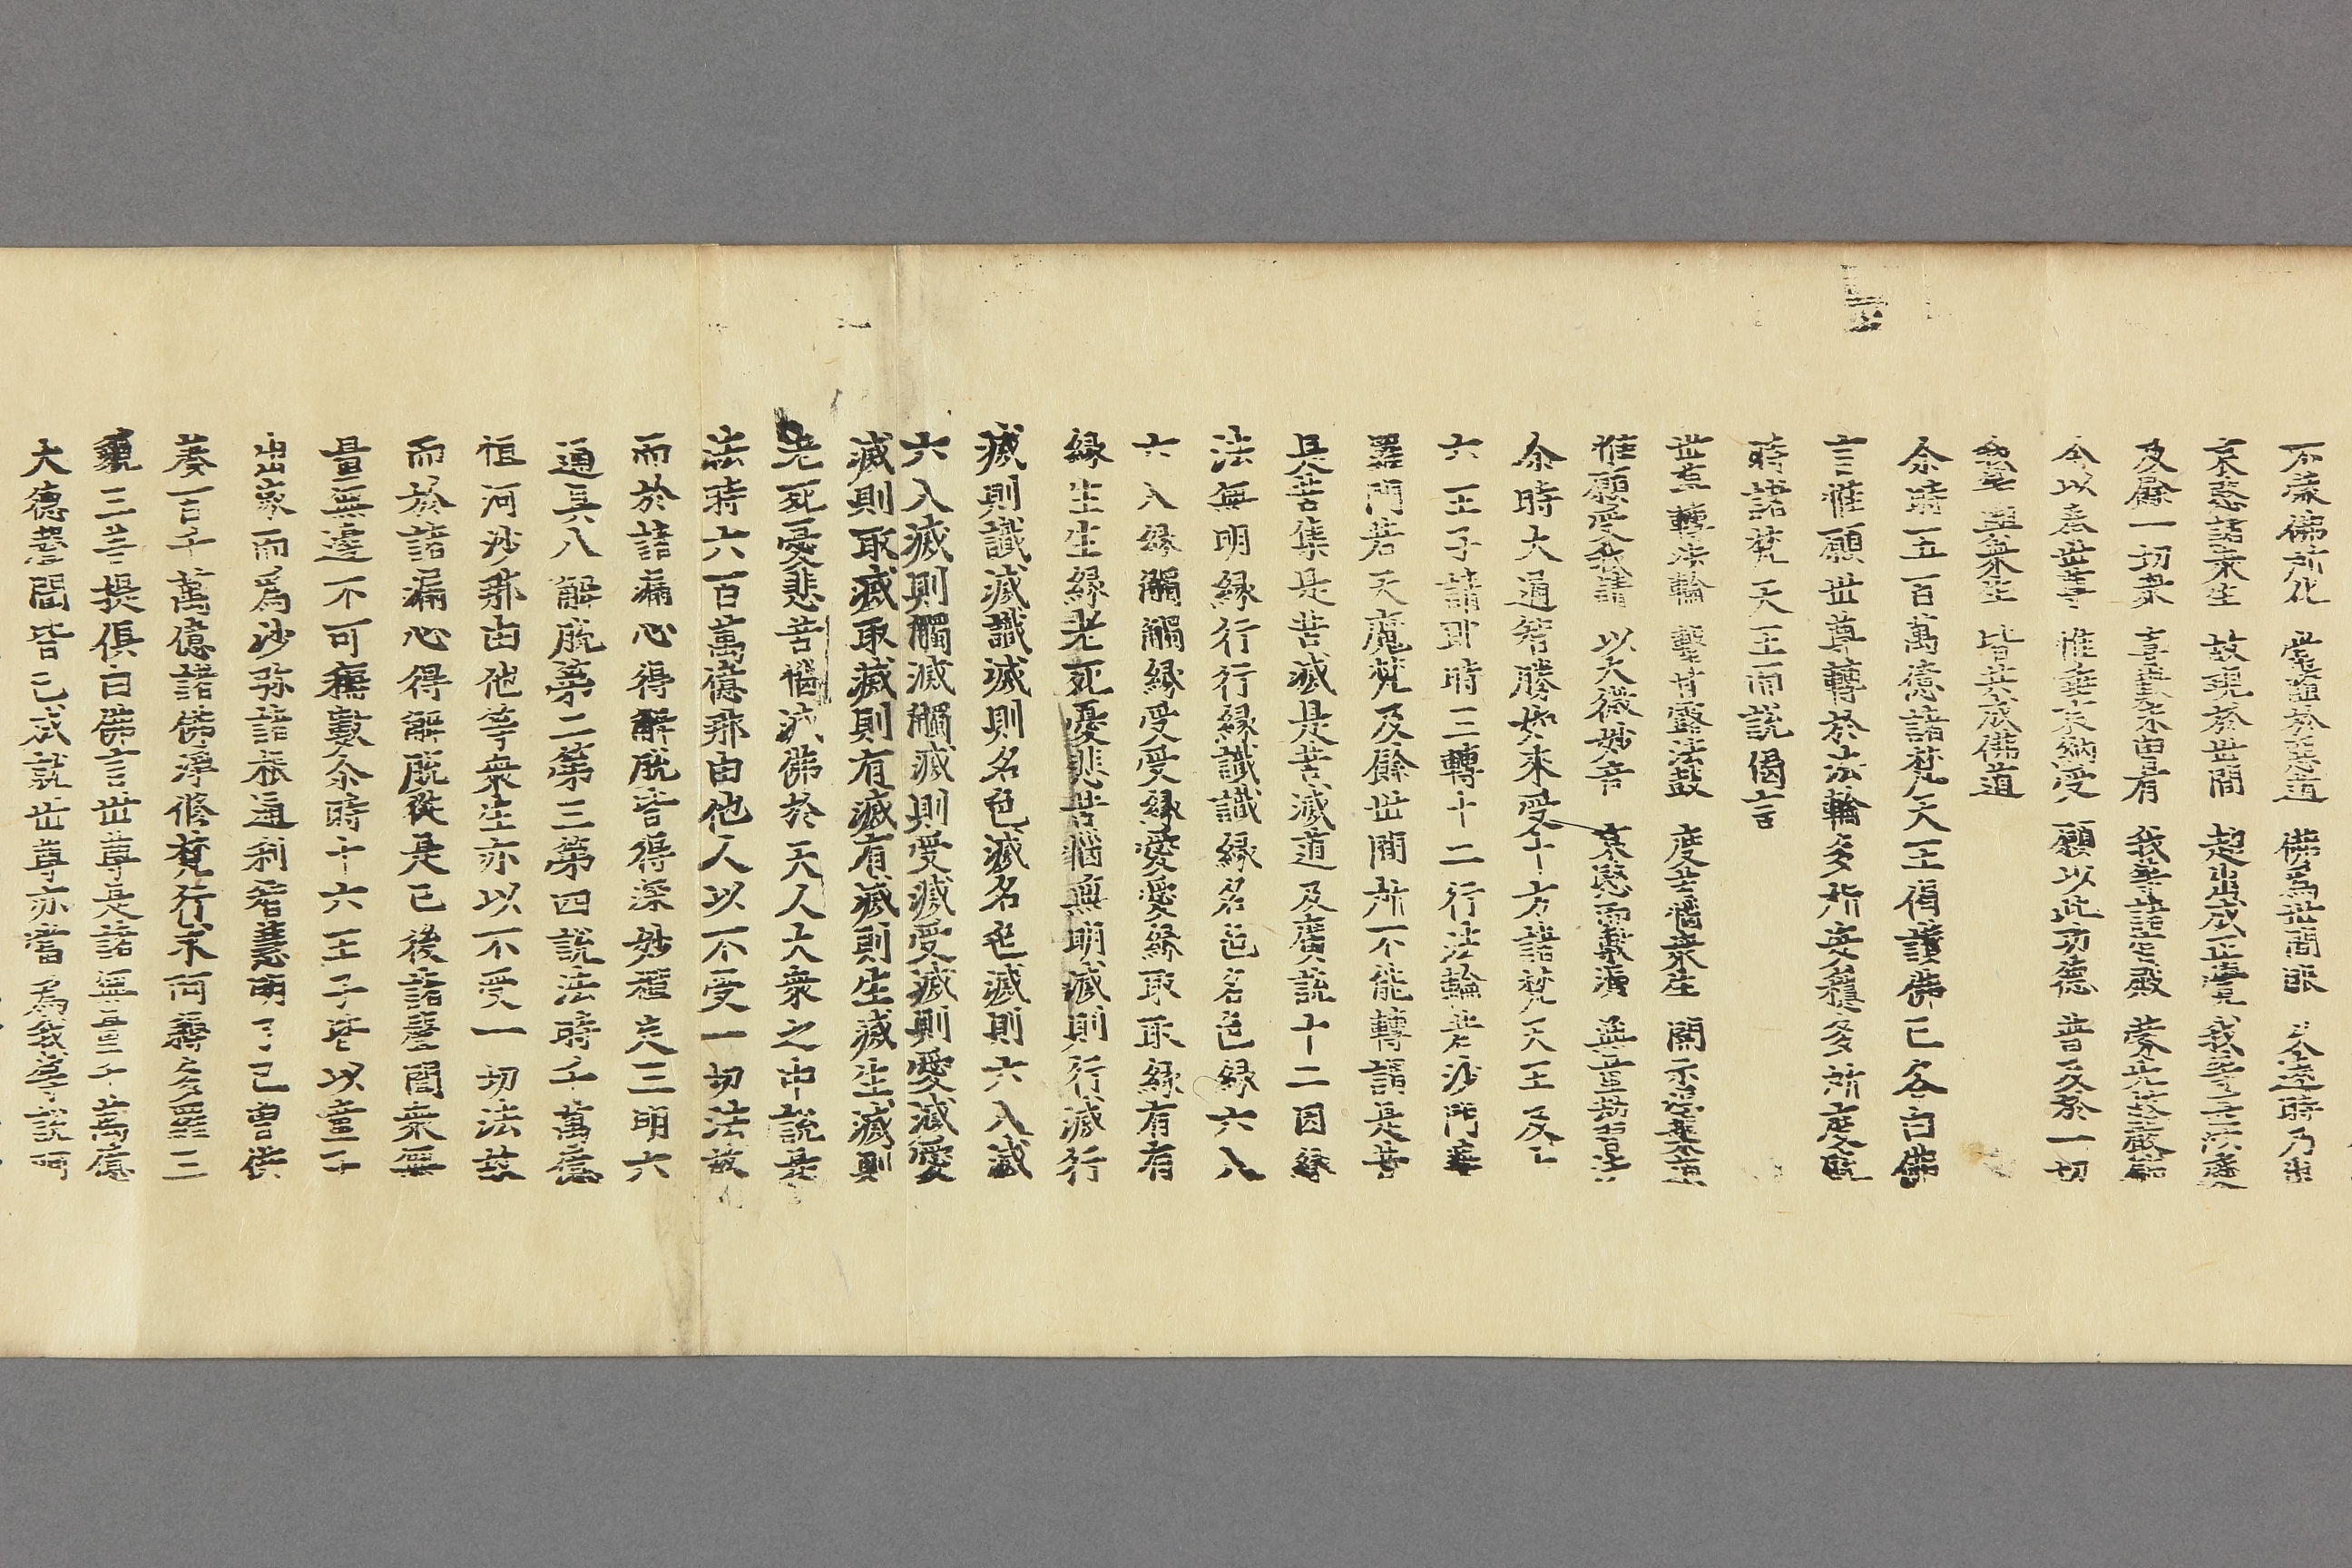 不蒙佛所化 常墮於惡道 佛爲世間眼 久遠時乃出
哀愍諸衆生 故現於世間 超出成正覺 我等甚欣慶
及餘一切衆 喜歎未曾有 我等諸宮殿 蒙光故嚴飾
今以奉世尊 惟垂哀納受 願以此功德 普及於一切
我等與衆生 皆共成佛道
尒時五百萬億諸梵天王偈讃佛已各白佛
言惟願世尊轉於法輪多所安穩多所度脫
時諸梵天王而說偈言
世尊轉法輪 擊甘露法鼓 度苦惱衆生 開示涅槃道
惟願受我請 以大微妙音 哀愍而敷演 無量劫習法
尒時大通智勝如來受十方諸梵天王及十
六王子請即時三轉十二行法輪若沙門婆
羅門若天魔梵及餘世間所不能轉謂是苦
是苦集是苦滅是苦滅道及廣說十二因緣
法無明緣行行緣識識緣名色名色緣六入
六入緣觸觸緣受受緣愛愛緣取取緣有有
緣生生緣老死憂悲苦惱無明滅則行滅行
滅則識滅識滅則名色滅名色滅則六入滅
六入滅則觸滅觸滅則受滅受滅則愛滅愛
滅則取滅取滅則有滅有滅則生滅生滅則
老死憂悲苦惱滅佛於天人大衆之中說是
法時六百萬億那由他人以不受一切法故
而於諸漏心得解脫皆得深妙禪定三明六
通具八解脫第二第三第四說法時千萬億
恒河沙那由他等衆生亦以不受一切法故
而於諸漏心得解脫從是已後諸聲聞衆無
量無邊不可稱數尒時十六王子皆以童子
出家而爲沙弥諸根通利智慧明了已曾供
養百千萬億諸佛淨修梵行求阿耨多羅三
藐三菩提俱白佛言世尊是諸無量千萬億
大德聲聞皆已成就世尊亦當爲我等說阿